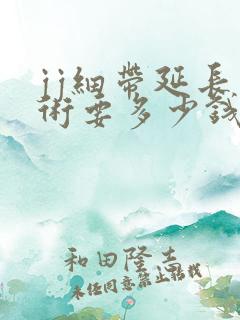 jj細帶延長
術要多少錢
和田隆士
未经同意禁止転载